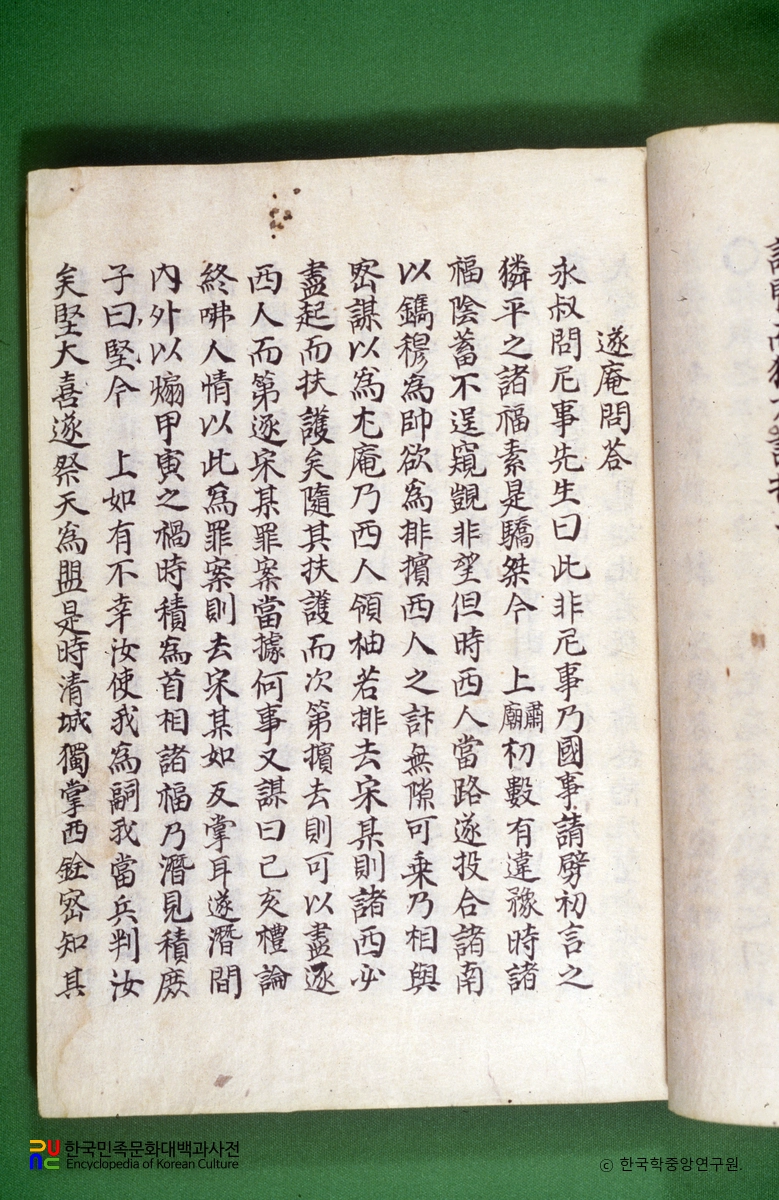 遂庵問答
永叔問尼事先生曰此非尼事乃國事請劈初言之
獜平之諸福素是驕桀今 上肅廟初數有違豫時諸
福陰蓄不逞窺覬非望但時西人當路遂投合諸南
以鑴穆為帥欲為排擯西人之計無隙可乗乃相與
宻謀以為尤庵乃西人領柚若排去宋某則諸西必
盡起而扶護矣隨其扶護而次第擯去則可以盡逐
西人而第逐宋某罪案當據何事又謀曰己亥禮論
終咈人情以此為罪案則去宋某如反掌耳遂潛間
內外以煽甲寅之禍時積為首相諸福乃潛見積庶
子曰堅今 上如有不幸汝使我為嗣我當兵判汝
矣堅大喜遂祭天為盟是時清城獨掌西銓宻知其
한국민족문화대백과사전
Encyclopedia of Korean Culture
© 한국학중앙연구원.